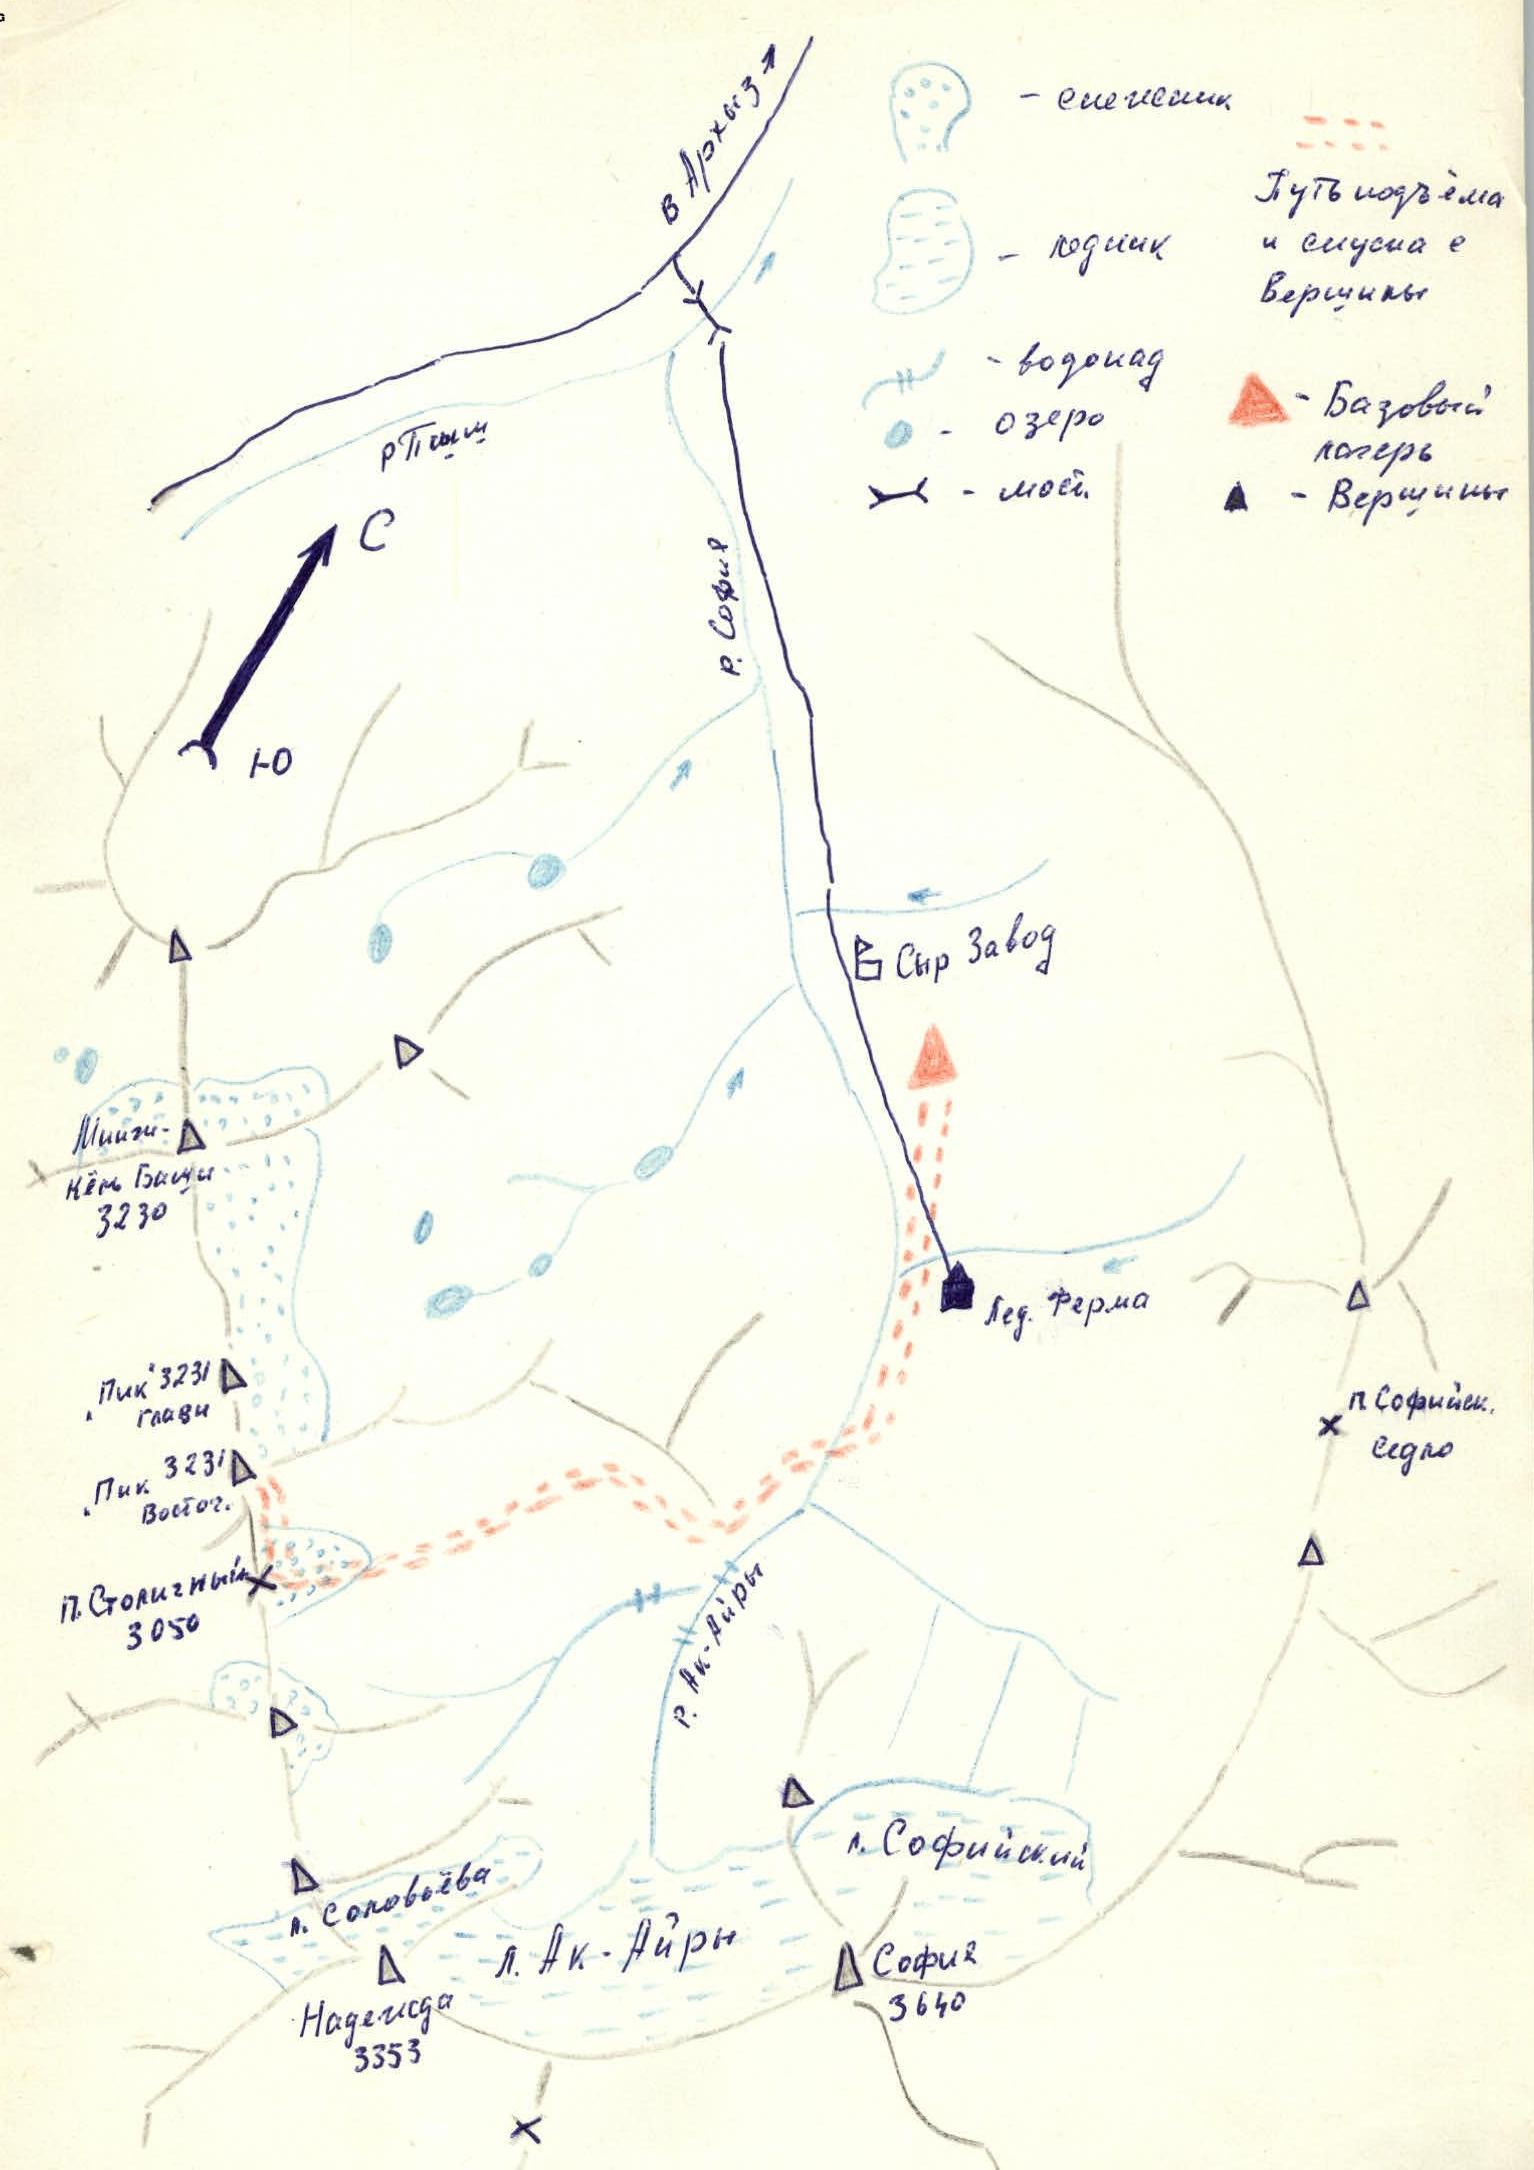 В Архыз
- снежник
Путь подъёма
и спуска с
Вершины
- ледник
- водопад
- озеро
- мост
- Базовый
лагерь
- Вершины
р Пшыш
С
Ю
р. София
Сыр Завод
3230
Лед. Ферма
"Пик" 3231
главн
"Пик 3231
Восточ.
п. Софийск.
Седло
п. Столичный
3050
р. Ак-Айры
л. Софийский
л. Соловьёва
л. Ак-Айры
София
3640
Надежда
3353